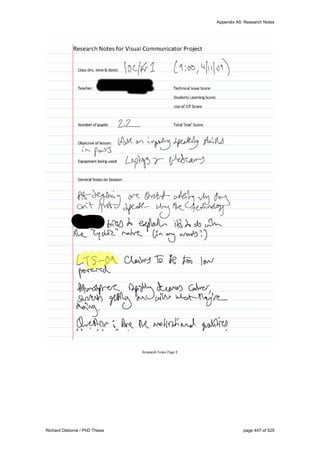 Appendix A5: Research Notes
Research Notes for Visual Communicator Project
Class (inc. time & date): 10C/Kr1 (9:00, 4/11/09)
Teacher:
Technical Issue Score:
Students Learning Score:
Use of ICT Score:
Number of pupils: 22 Total 'Star' Score:
Objective of lesson: Work on improving speaking
in pairs
Equipment being used: Laptops + Webcams
General Notes on Session:
At beginning are
can't speak why the technology
tries to explain it's to do with
the "cyclic" nature (in my words!)
LTS-09 claims to be too low
powered
Atmosphere becomes calmer,
students getting on with what they're
doing.
Question: Are the motivational qualities
Research Notes Page 8
Richard Osborne / PhD Thesis
page 447 of 525